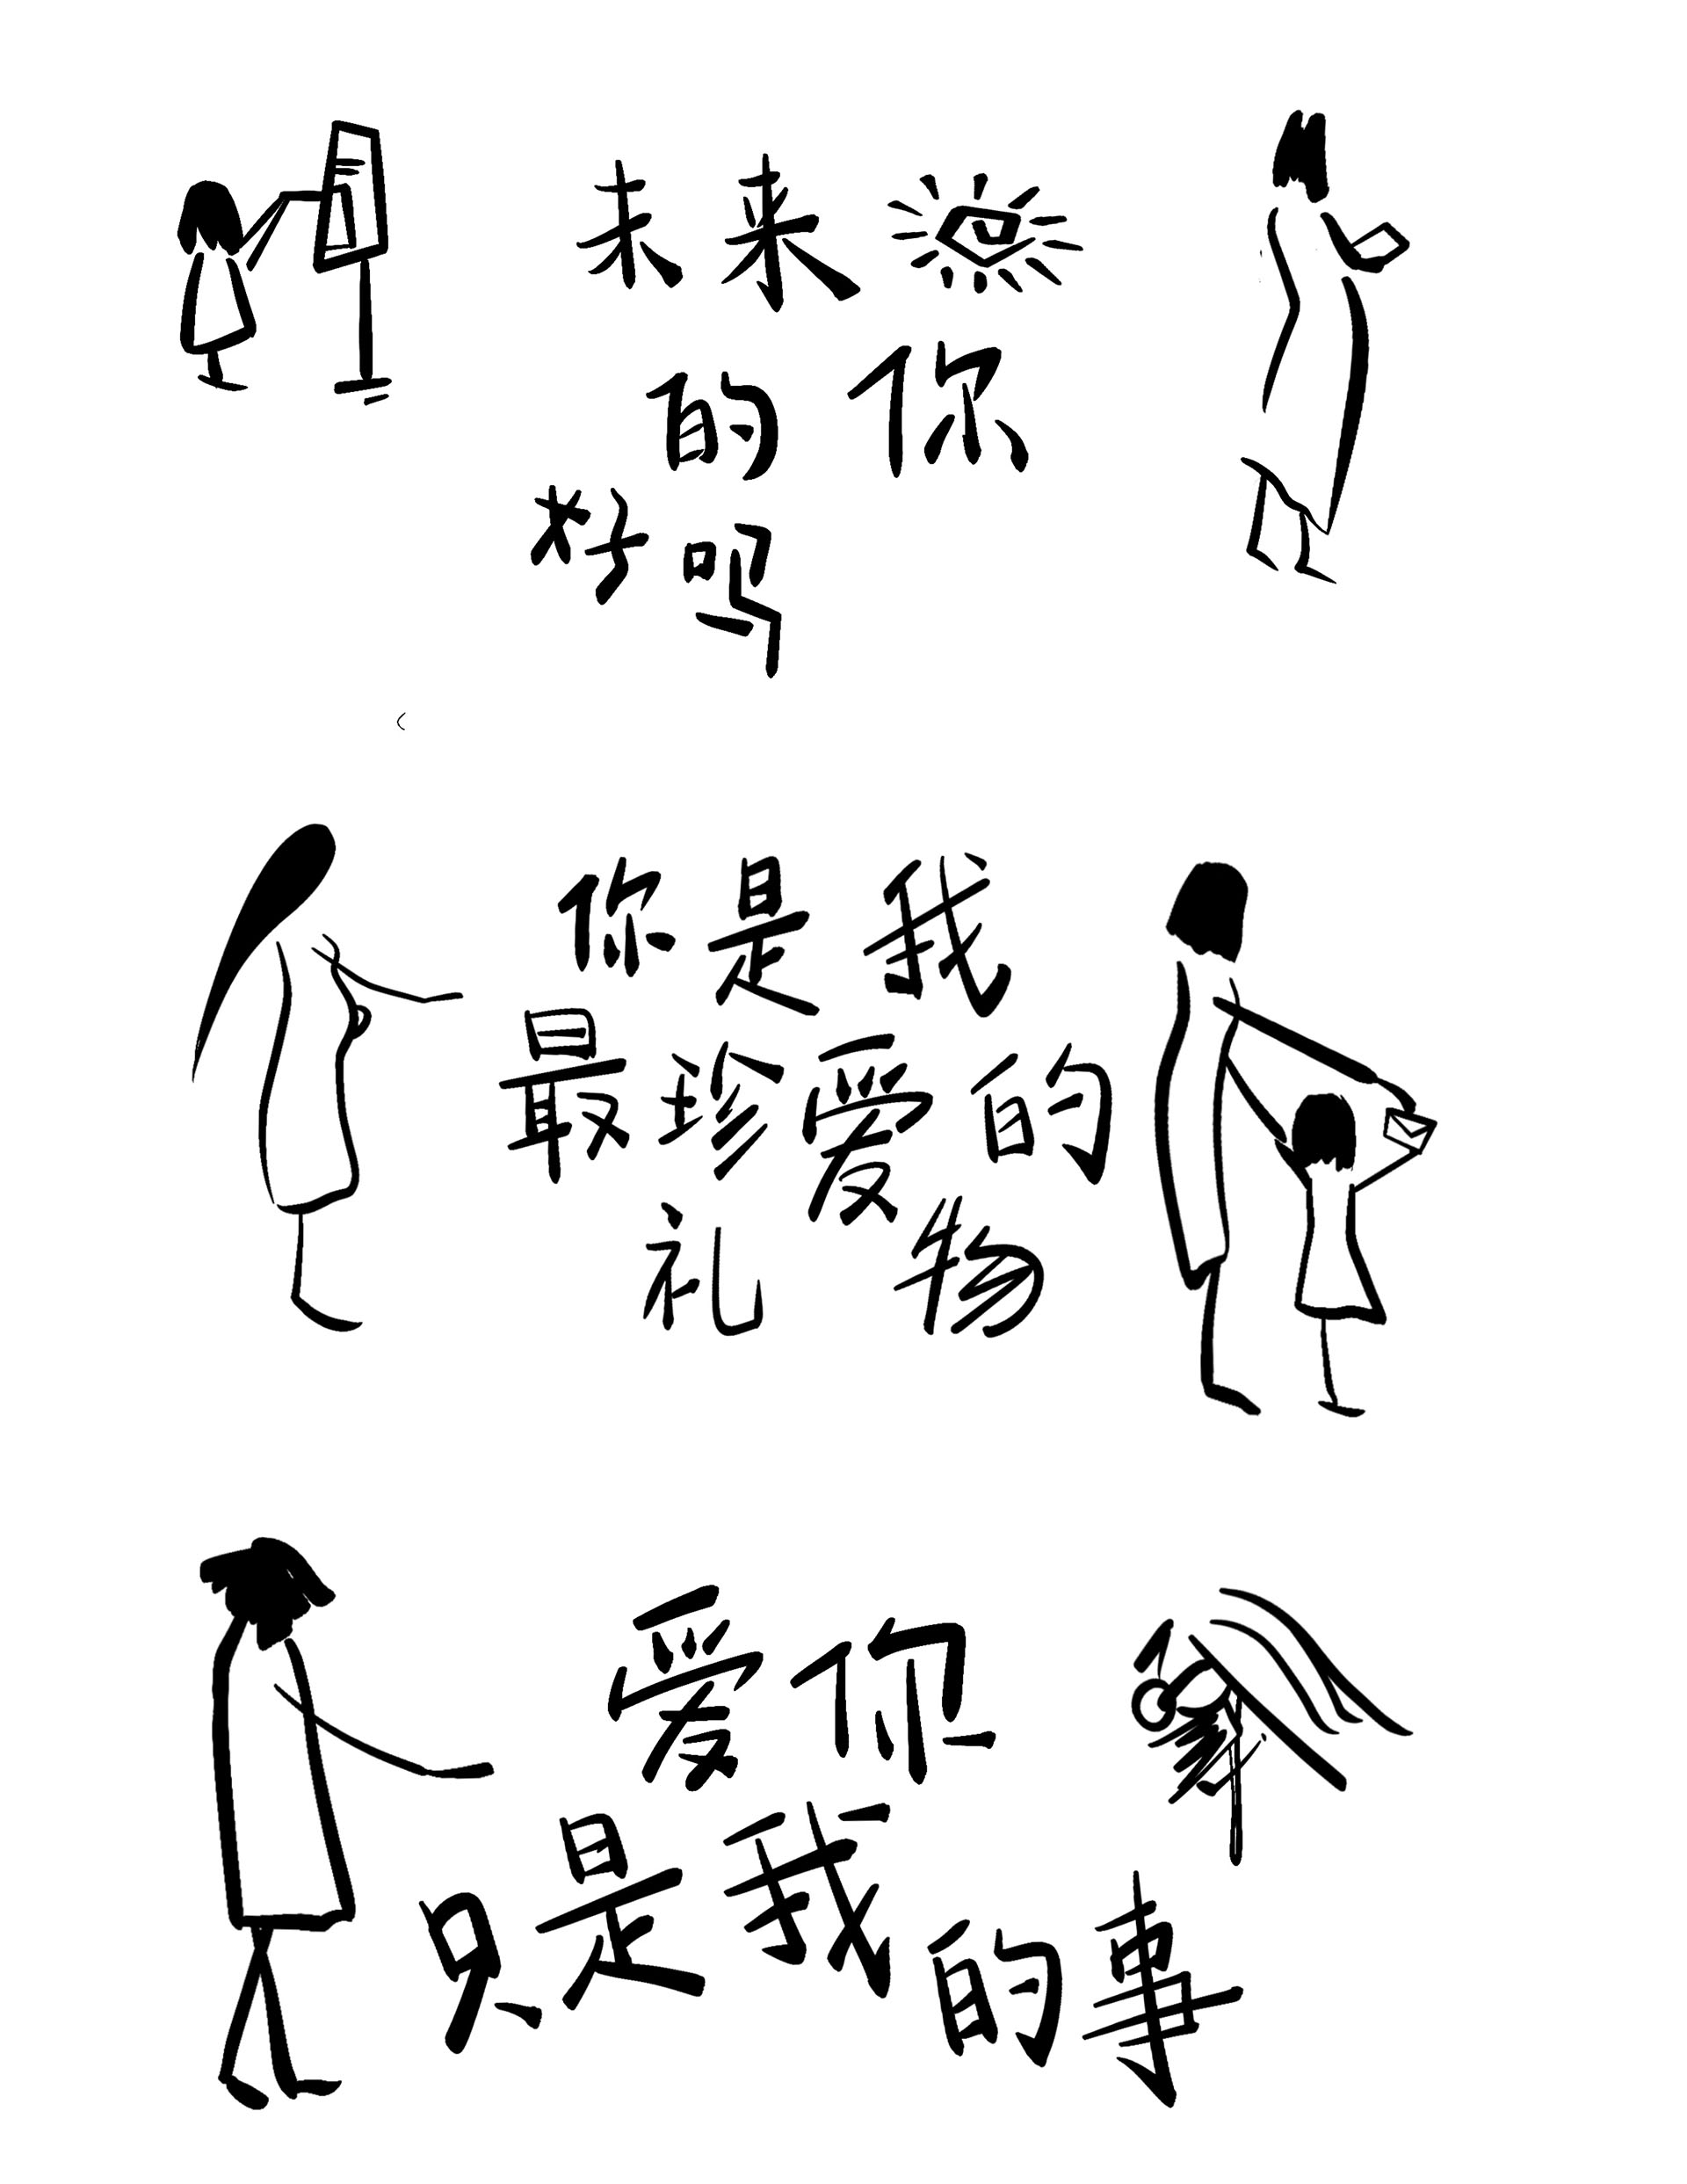 未来
的你
好吗
你是我
最珍爱的
礼物
爱你
只是我的事